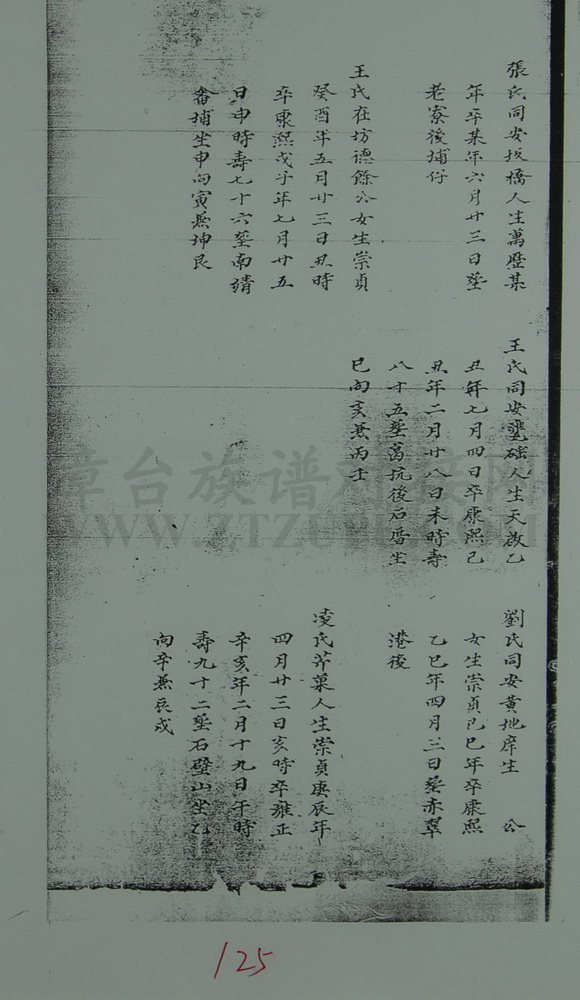 張氏同安板橋人生萬歷某
年卒某年六月廿三日塟
老寮後埔仔
王氏在坊德餘公女生崇貞
癸酉年五月廿三日丑時
卒康熙戊子年七月廿五
日申時壽七十六塟南靖
畨埔坐申向寅兼坤艮
王氏同安礎人生天啟乙
丑年七月四日卒康熙己
丑年二月廿八日未時壽
八十五塟髙坑後石厝坐
巳向亥兼丙壬
劉氏同安黄地庠生 公
女生崇貞己巳年卒康熙
乙巳年四月三日塟赤羣
港後
凌氏菓人生崇貞庚辰年
四月廿三日亥時卒雍正
辛亥年二月十九日午時
壽九十二塟石壁山坐乙
向辛兼辰戍
漳台族谱对接网
WWW.ZTZUPU.COM
125